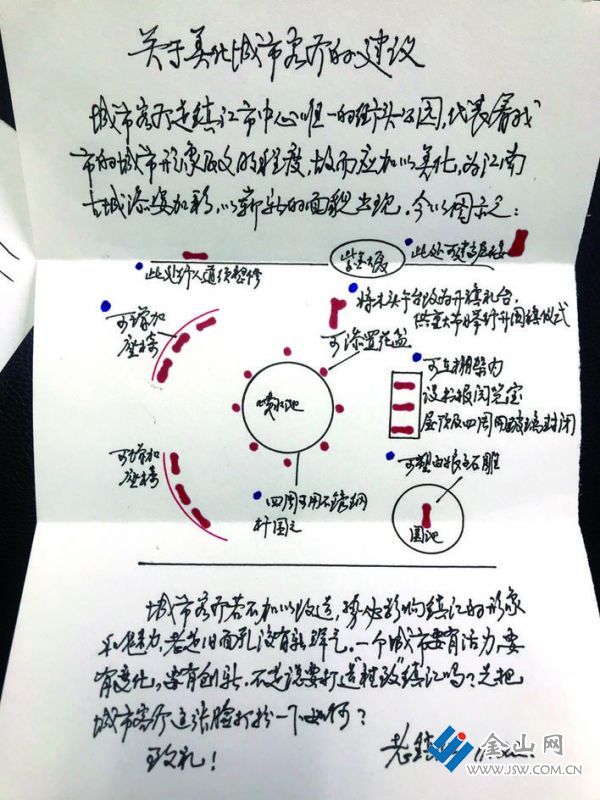 关于美化城市客厅的建议
城市客厅是镇江市中心唯一的街头公园，代表着我
市的城市形象及文明程度，故而应加以美化，为江南
古城添姿加彩，以崭新的面貌出现，今以图示之：
紫金大厦
此处可
此处行人道须整修
可增加
座椅
将木头平台改为升旗礼台，
供重大节日举行升国旗仪式
可添置花盆
喷水池
可在棚架内
设报阅览室
屋顶及四周用玻璃封闭
可增加
座椅
四周可用不锈钢
杆围之
可塑石雕
圆池
城市客厅若不加以改造，势必影响镇江的形象
和魅力，老是旧面孔没有新鲜元。一个城市要有活力，要
有变化，要有创新。不是说要打造“精致”镇江吗？先把
城市客厅这张脸打扮一下如何？
致礼！
老镇
金山网
WWW.JSW.COM.CN